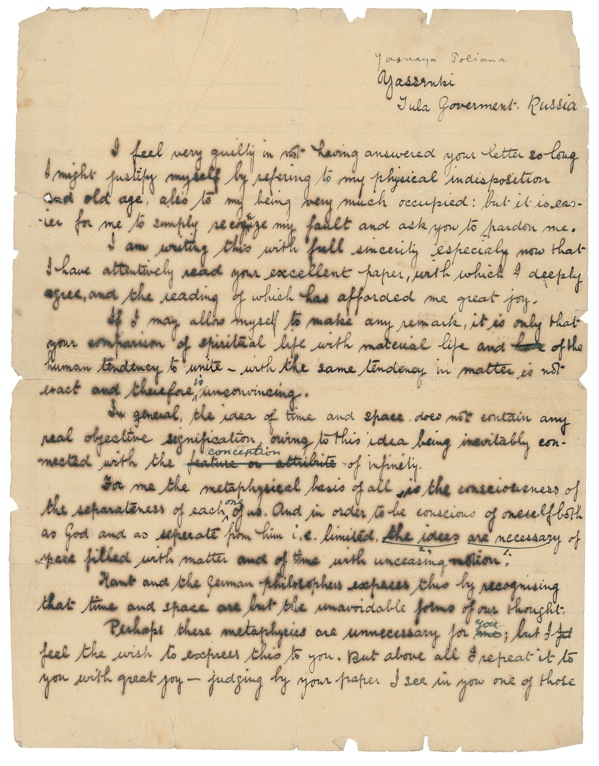 Yasnaya Poliana
Yassenki
Tula Goverment. Russia
I feel very guilty in not having answered your letter so long
I might justify myself by refering to my physical indisposition
and old age, also to my being very much occupied: but it is eas-
ier for me to simply recognize my fault and ask you to pardon me.
I am writing this with full sincerity especialy now that
I have attentively read your excellent paper, with which I deeply
agree, and the reading of which has afforded me great joy.
If I may allow myself to make any remark, it is only that
your comparison of spiritual life with material life and of the
human tendency to unite – with the same tendency in matter, is not
exact and therefore, is unconvincing.
In general, the idea of time and space does not contain any
real objective signification, owing to this idea being inevitably con-
conception
nected with the feature or attribute of infinity.
For me the metaphysical basis of all is the consciousness of
the separateness of each one of us. And in order to be conscious of oneself both
as God and as seperate from him i.e. limited, the ideas are necessary of
space filled with matter and of time with unceasing motion.
Kant and the German philosophers express this by recognising
that time and space are but the unavoidable forms of our thought.
you
Perhaps these metaphysics are unnecessary for ; but I
feel the wish to express this to you. But above all I repeat it to
you with great joy – judging by your paper I see in you one of those